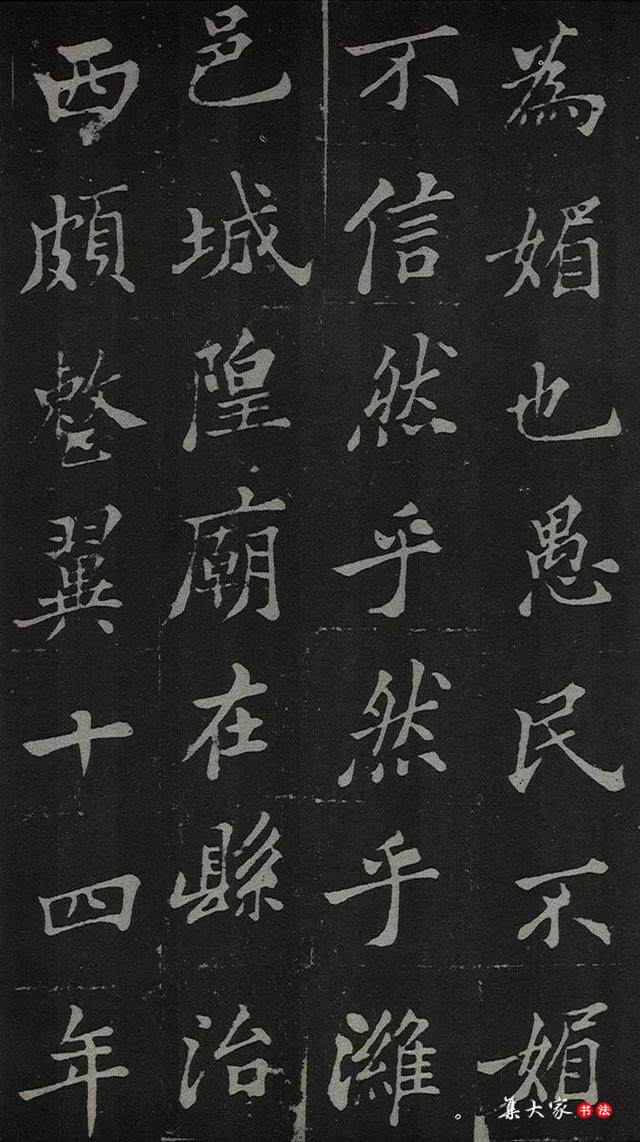 為媚也愚民不媚
不信然乎然乎濰
邑城隍廟在縣治
西頗整翼十四年
集大家书法